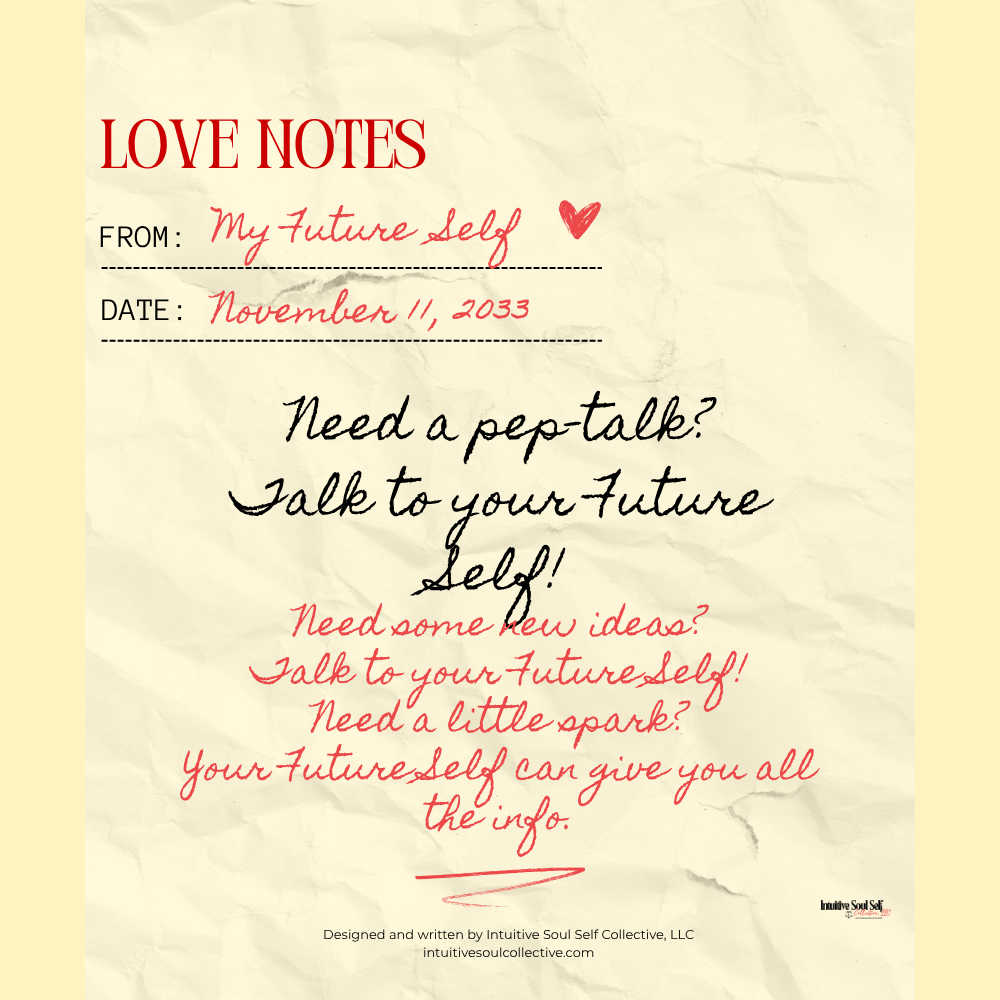 LOVE NOTES
FROM: My Future Self
DATE: November 11, 2033
Need a pep-talk?
Talk to your Future
Self!
Need some new ideas?
Talk to your Future Self!
Need a little spark?
Your Future Self can give you all
the info.
Intuitive Soul Self
Collective, LLC
Designed and written by Intuitive Soul Self Collective, LLC
intuitivesoulcollective.com